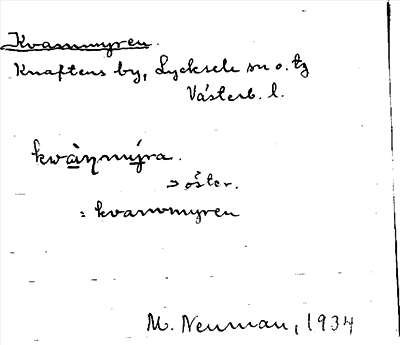 Kvarnmyren.
Knaftens by, Lycksele sn o. tg
Västerb. l.
kwàṇmýra.
⊃ öster.
= kvarnmyren
M. Neuman, 1934